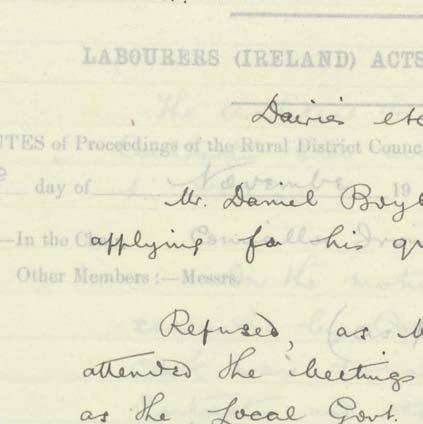 LABOURERS (IRELAND) ACTS
Dairies etc
UTES of Proceedings of the Rural District Counc
day of November 19
Mr. Daniel Boy
—In the Ch
applying for his
Other Members :—Messrs.
Refused, as
attended the meetings
as the Local Govt.